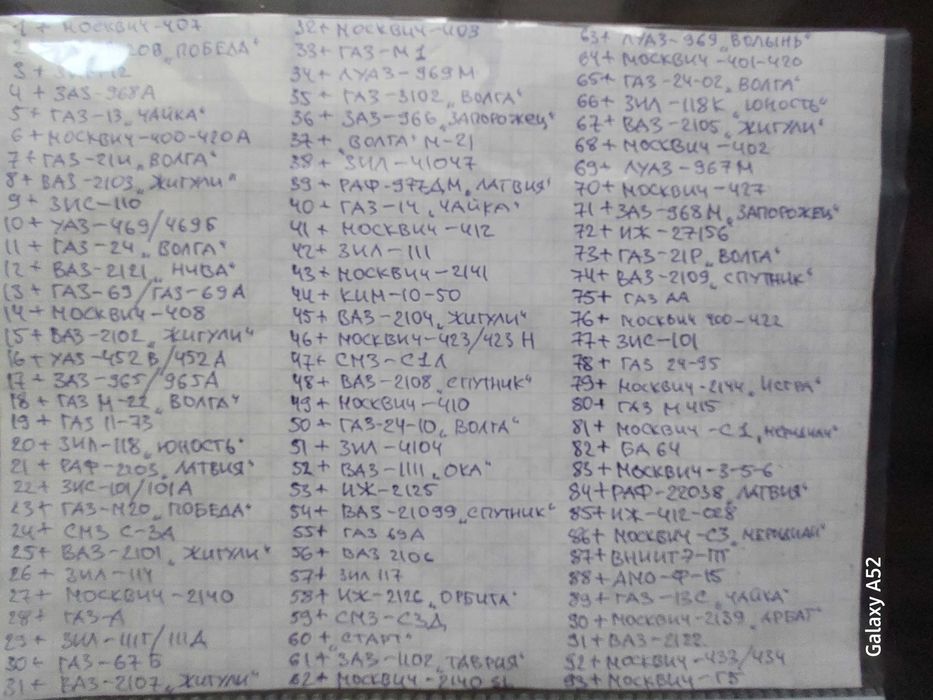 1 + МОСКВИЧ-407
2 "ПОБЕДА"
3 +
4 + ЗАЗ-968А
5 + ГАЗ-13 „ЧАЙКА“
6 + МОСКВИЧ-400-420А
7 + ГАЗ-21И „ВОЛГА“
8 + ВАЗ-2103 „ЖИГУЛИ“
9 + ЗИС-110
10 + УАЗ-469/469Б
11 + ГАЗ-24 „ВОЛГА“
12 + ВАЗ-2121 „НИВА“
13 + ГАЗ-69/ГАЗ-69А
14 + МОСКВИЧ-408
15 + ВАЗ-2102 „ЖИГУЛИ“
16 + УАЗ-452В/452А
17 + ЗАЗ-965/965А
18 + ГАЗ М-22 „ВОЛГА“
19 + ГАЗ 11-73
20 + ЗИЛ-118 „ЮНОСТЬ“
21 + РАФ-2203 „ЛАТВИЯ“
22 + ЗИС-101/101А
23 + ГАЗ-М20 „ПОБЕДА“
24 + СМЗ С-3А
25 + ВАЗ-2101 „ЖИГУЛИ“
26 + ЗИЛ-114
27 + МОСКВИЧ-2140
28 + ГАЗ-А
29 + ЗИЛ-111Г/111Д
30 + ГАЗ-67Б
31 + ВАЗ-2107 „ЖИГУЛИ“
32 + МОСКВИЧ-403
33 + ГАЗ-М1
34 + ЛУАЗ-969М
35 + ГАЗ-3102 „ВОЛГА“
36 + ЗАЗ-966 „ЗАПОРОЖЕЦ“
37 + „ВОЛГА“ М-21
38 + ЗИЛ-41047
39 + РАФ-977ДМ „ЛАТВИЯ“
40 + ГАЗ-14 „ЧАЙКА“
41 + МОСКВИЧ-412
42 + ЗИЛ-111
43 + МОСКВИЧ-2141
44 + КИМ-10-50
45 + ВАЗ-2104 „ЖИГУЛИ“
46 + МОСКВИЧ-423/423Н
47 + СМЗ-С1Л
48 + ВАЗ-2108 „СПУТНИК“
49 + МОСКВИЧ-410
50 + ГАЗ-24-10 „ВОЛГА“
51 + ЗИЛ-4104
52 + ВАЗ-1111 „ОКА“
53 + ИЖ-2125
54 + ВАЗ-21099 „СПУТНИК“
55 + ГАЗ 69А
56 + ВАЗ 2106
57 + ЗИЛ 117
58 + ИЖ-2126 „ОРБИТА“
59 + СМЗ-С3Д
60 + „СТАРТ“
61 + ЗАЗ-1102 „ТАВРИЯ“
62 + МОСКВИЧ-2140 SL
63 + ЛУАЗ-969 „ВОЛЫНЬ“
64 + МОСКВИЧ-401-420
65 + ГАЗ-24-02 „ВОЛГА“
66 + ЗИЛ-118К „ЮНОСТЬ“
67 + ВАЗ-2105 „ЖИГУЛИ“
68 + МОСКВИЧ-402
69 + ЛУАЗ-967М
70 + МОСКВИЧ-427
71 + ЗАЗ-968М „ЗАПОРОЖЕЦ“
72 + ИЖ-27156
73 + ГАЗ-21Р „ВОЛГА“
74 + ВАЗ-2109 „СПУТНИК“
75 + ГАЗ АА
76 + МОСКВИЧ 400-422
77 + ЗИС-101
78 + ГАЗ 24-95
79 + МОСКВИЧ-2144 „ИСТРА“
80 + ГАЗ М415
81 + МОСКВИЧ-С1 „МЕРИДИАН“
82 + БА 64
83 + МОСКВИЧ-3-5-6
84 + РАФ-22038 „ЛАТВИЯ“
85 + ИЖ-412-028
86 + МОСКВИЧ-С3 „МЕРИДИАН“
87 + ВНИИТЭ-ПТ
88 + АМО-Ф-15
89 + ГАЗ-13С „ЧАЙКА“
90 + МОСКВИЧ-2139 „АРБАТ“
91 + ВАЗ-2122
92 + МОСКВИЧ-433/434
93 + МОСКВИЧ-Г5
Galaxy A52